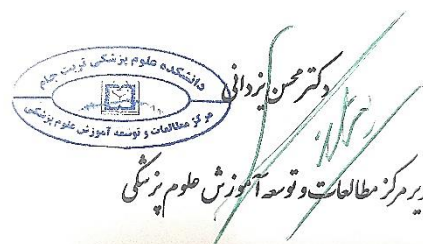 دانشکده علوم پزشکی تربت جام
مرکز مطالعات و توسعه آموزش علوم پزشکی
دکتر محسن یزدانی
دیر مرکز مطالعات و توسعه آموزش علوم پزشکی